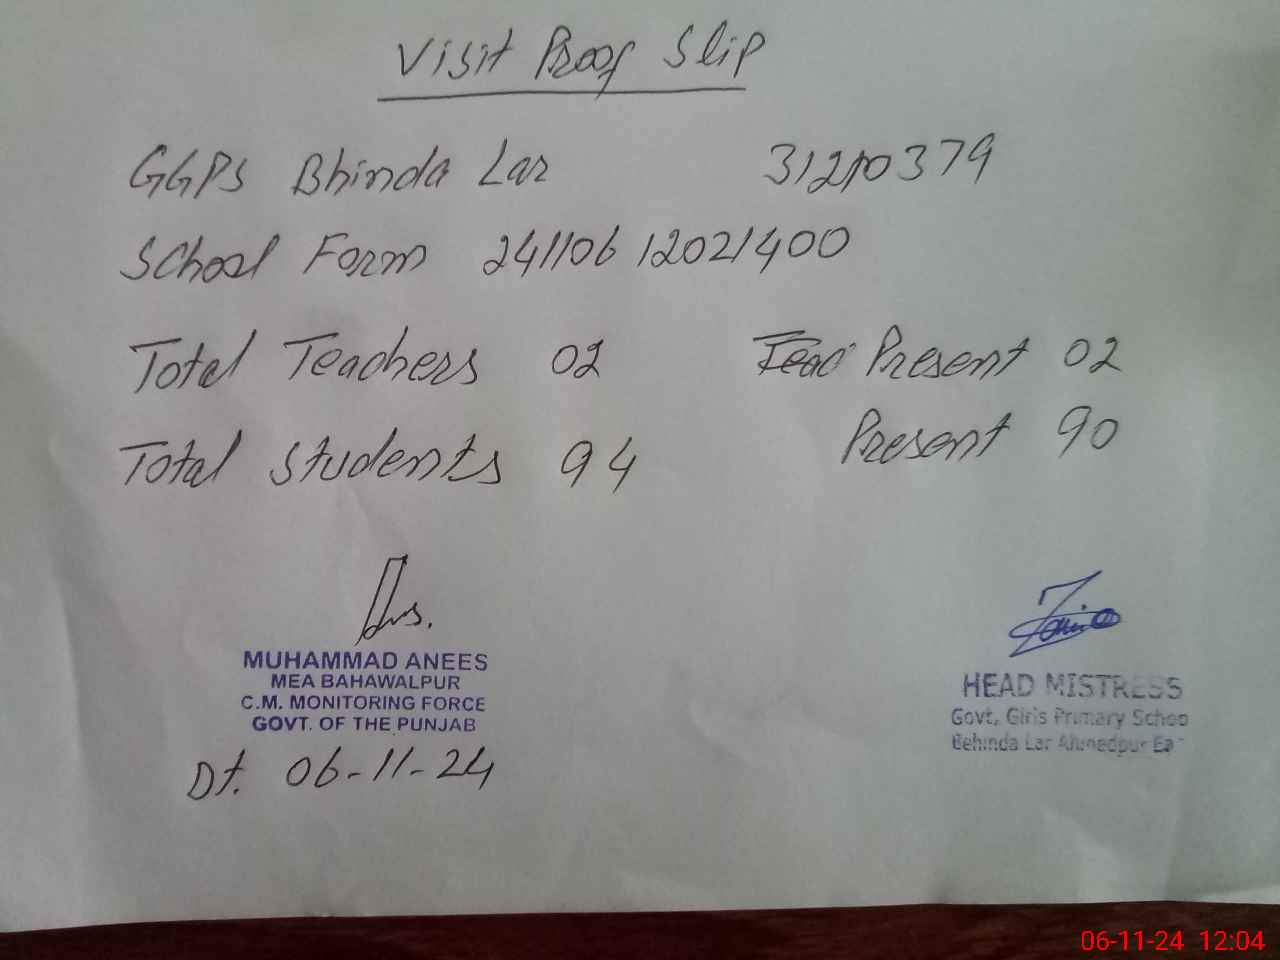 Visit Proof Slip
GGPS Bhinda Lar 31210379
School Form 24110612021400
Total Teachers 02 Present 02
Total Students 94 Present 90
MUHAMMAD ANEES
MEA BAHAWALPUR
C.M. MONITORING FORCE
GOVT. OF THE PUNJAB
Dt. 06-11-24
HEAD MISTRESS
Govt, Girls Primary Schoo
Behinda Lar Ahmedpur Ea
06-11-24 12:04